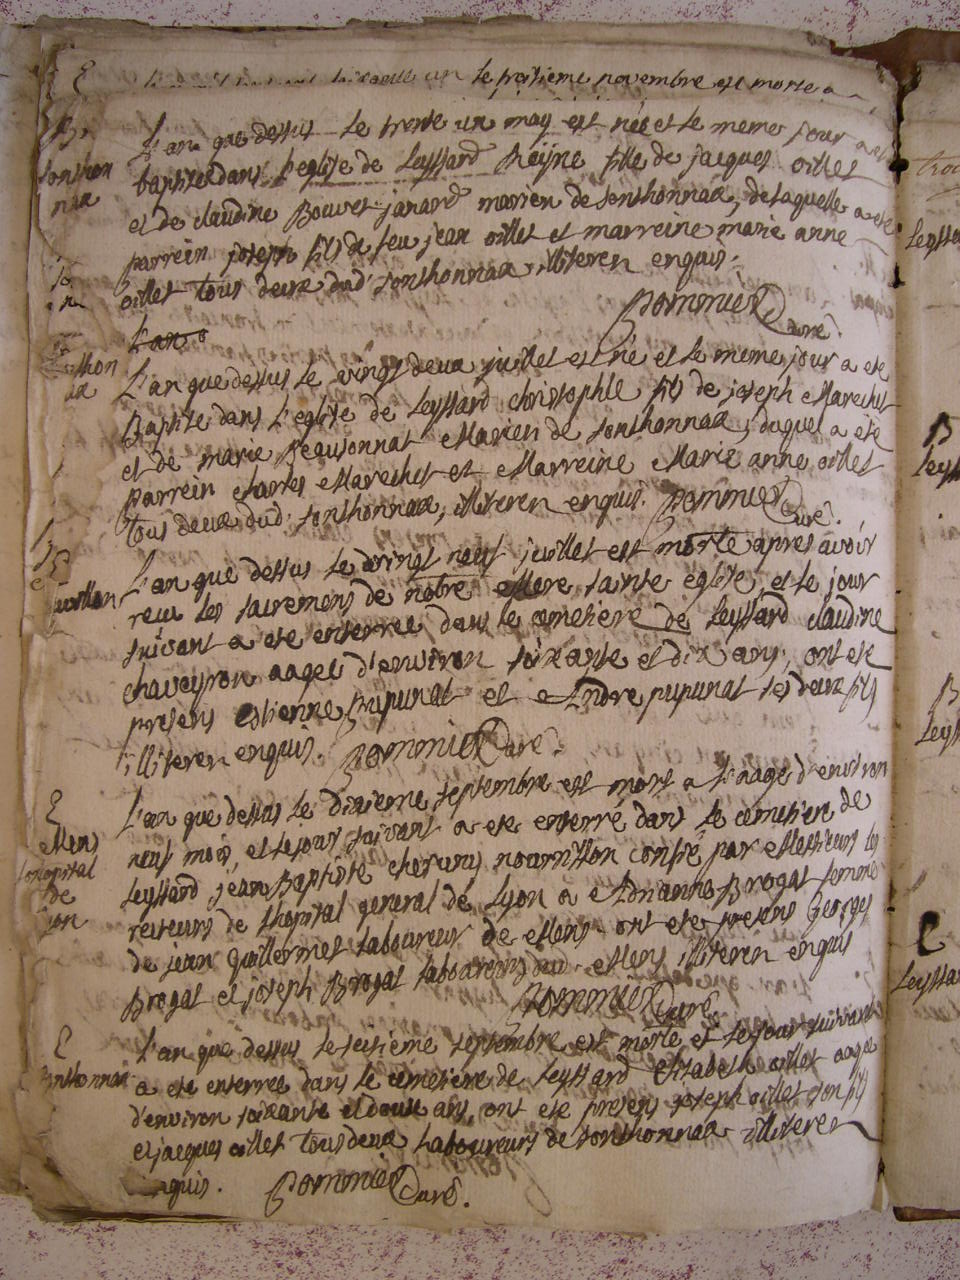 E
un le troisieme novembre est morte a
B
sonthon
nax
L'an que dessus le trente un may est née et le meme jour a eté
baptisée dans l'eglise de Leyssard Reyne fille de jacques oillet
et de claudine Bouvet janard mariez de Sonthonnax, de laquelle a eté
parrein joseph fils de feu jean oillet et marreine marie anne
oillet tous deux dud' sonthonnax illiteren enquis.
Pommier Curé.
L'an
thon
ax
L'an que dessus le vingt deux juillet est né et le meme jour a eté
Baptisé dans L'eglise de Leyssard christophle fils de joseph Marechet
et de marie Mariez de sonthonnax, duquel a eté
parrein Marechet et Marreine Marie anne oillet
tous deux dud. sonthonnax, illiteren enquis. Pommier Curé.
L'an que dessus le vingt neuf juillet est morte apres avoir
recu les sacremens de notre Mere sainte eglise, et le jour
suivant a eté enterrée dans le cemetiere de Leyssard claudine
chaveyron aagée d'environ soixante et dix ans, ont eté
presens Estienne pupunat et Andre pupunat ses deux fils
illiteren enquis. Pommier Curé.
E
Mens
l'hopital
de
Lyon
L'an que dessus le dixieme septembre est mort a l'aage d'environ
neuf mois, et le jour suivant a eté enterré dans le cemetiere de
Leyssard jean Baptiste nourrisson confié par Messieurs les
recteurs de l'hopital general de Lyon a Brogat femme
de jean Guillermet laboureur de Mens ont eté presens Georges
Brogat et joseph Brogat laboureurs dud. Mens illiteren enquis
Pommier Curé.
E
Sonthonnax
L'an que dessus le seisieme septembre est morte et le jour suivant
a eté enterrée dans le cemetiere de Leyssard Elisabeth oillet aagée
d'environ soixante et douse ans, ont eté presens joseph oillet son fils
et jacques oillet tous deux Laboureurs de sonthonnax illiteren
enquis. Pommier Curé.
Leyssa
B
Leyss
B
Leyss
E
Leyssa